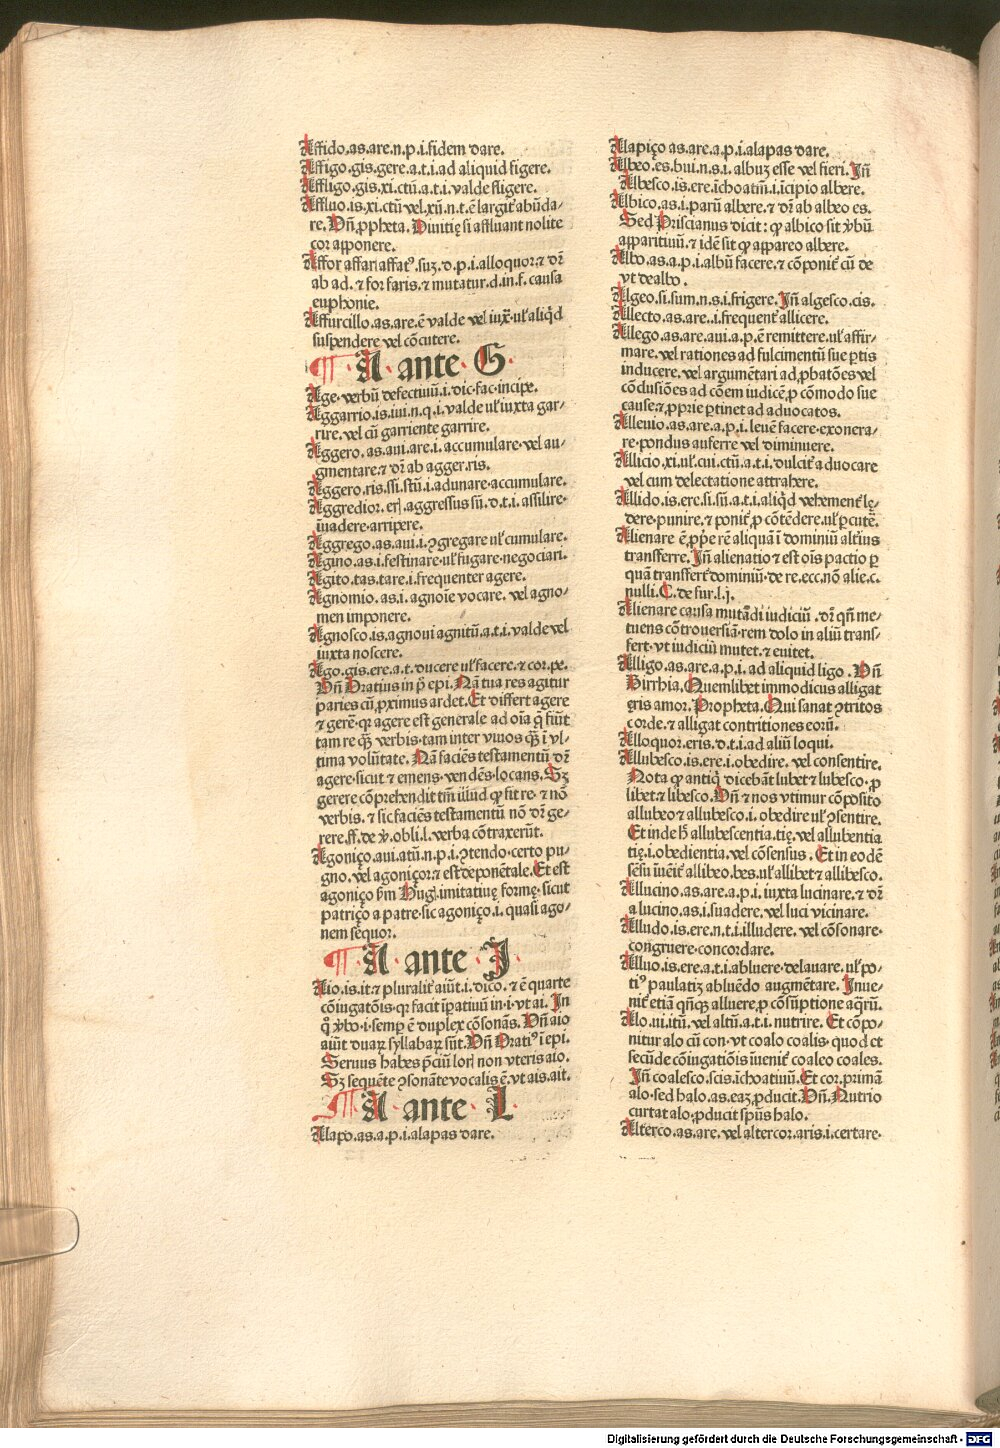 Affido.as.are.n.p.i.fidem dare.
Affigo.gis.gere.a.t.i.ad aliquid figere.
Affligo.gis.xi.ctū.a.t.i.valde fligere.
Affluo.is.xi.ctū vel.xū.n.t.ē largit᷑ abūda⸗
re.Vn̄.ꝓpheta. Diuitię si affluant nolite
cor aꝓponere.
Affor affarj affatꝰ.suꝫ.d.p.i.alloquor.⁊ dr̄
ab ad.⁊ for faris.⁊ mutatur.d.in.f. causa
euphonie.
Affurcillo.as.are.ē valde vel iux̄.ul᷑ aliq̄d
suspendere vel cōcutere.
¶ A ante G
Age.verbū defectiuū.i.dic.fac.incipe.
Aggarrio.is.iui.n.q.i.valde ul᷑ iuxta gar⸗
rire.vel cū garriente garrire.
Aggero.as.aui.are.i.accumulare.vel au⸗
gmentare.⁊ dr̄ ab agger.ris.
Aggero.ris.ssi.stū.i.adunare.accumulare.
Aggredior.erj.aggressus sū.d.t.i.assilire.
īuadere.arripere.
Aggrego.as.aui.i.ꝯgregare ul᷑ cumulare.
Agino.as.i.festinare.ul᷑ fugare.negociari.
Agito.tas.tare.i.frequenter agere.
Agnomio.as.i.agnoīe vocare. vel agno⸗
men imponere.
Agnosco.is.agnoui agnitū.a.t.i.valde vel
iuxta noscere.
Ago.gis.ere.a.t.ducere ul᷑ facere.⁊ cor.pe.
Vn̄ Oratius in p̄ epi. Nā tua res agitur
paries cū ꝓximus ardet.Et differt agere
⁊ gere᷑.qꝛ agere est generale ad oīa q̄ fiūt
tam re qꝫ verbis.tam inter viuos qꝫ ī vl⸗
tima volūtate. Nā faciēs testamentū dr̄
agere.sicut ⁊ emens.vendēs.locans.Sꝫ
gerere cōprehendit tm̄ illud qd̓ fit re.⁊ nō
verbis.⁊ sic faciēs testamentū nō dr̄ ge⸗
rere.ff.de ꝟ.obli.l.verba cōtraxerūt.
Agoniço.aui.atū.n.p.i.ꝯtendo.certo pu⸗
gno.vel agoniçor.⁊ est deponētale.Et est
agoniço ẜm Hug̓.imitatiuę formę.sicut
patriço a patre.sic agoniço.i.quasi ago⸗
nem sequor.
¶ A ante J
Aio.is.it.⁊ pluralit᷑ aiūt.i.dico.⁊ ē quarte
cōiugatōis.qꝛ facit īpatiuū in.i.vt ai. In
q̊ ꝟbo.i.semꝑ ē duplex cōsonās.Vn̄ aio
aiūt duaꝝ syllabaꝝ sūt.Vn̄ Oratiꝰ ī epi.
Seruus habes p̄ciū lorj non vteris aio.
Sꝫ sequēte ꝯsonāte vocalis ē.vt ais.ait.
¶ A ante L
Alapo.as.a.p.i.alapas dare.
Alapiço.as.are.a.p.i.alapas dare.
Albeo.es.bui.n.s.i.albuꝫ esse vel fieri.In̄
Albesco.is.ere.īchoatiū.i.īcipio albere.
Albico.as.i.parū albere.⁊ dr̄ ab albeo es.
Sed Priscianus dicit: qd̓ albico sit ꝟbū
apparitiuū.⁊ idē sit qd̓ appareo albere.
Albo.as.a.p.i.albū facere.⁊ cōponit᷑ cū de
vt dealbo.
Algeo.si.sum.n.s.i.frigere.In̄ algesco.cis.
Allecto.as.are..i.frequent᷑ allicere.
Allego.as.are.aui.a.p.ē remittere.ul᷑ affir⸗
mare.vel rationes ad fulcimentū sue ꝑtis
inducere.vel argumētari ad ꝓbatōes vel
cōclusiōes ad cōem iudicē.ꝓ cōmodo sue
cause.⁊ ꝓprie ꝑtinet ad aduocatos.
Alleuio.as.are.a.p.i.leuē facere.exonera⸗
re.pondus auferre vel diminuere.
Allicio.xi.ul᷑.cui.ctū.a.t.i.dulcit᷑ aduocare
vel cum delectatione attrahere.
Allido.is.ere.si.sū.a.t.i.aliq̄d vehement᷑ lę⸗
dere.punire.⁊ ponit᷑ ꝓ cōtēdere.ul᷑ ꝑcute᷑.
Alienare ē ꝓp̄e rē aliquā ī dominiū alt̓ius
transferre. In̄ alienatio ⁊ est oīs pactio ꝑ
quā transfert᷑ dominiū.de re.ecc.nō alie.c.
nulli.C.de fur.l.j.
Alienare causa mutādi iudiciū.dr̄ qn̄ me⸗
tuens cōtrouersiā.rem dolo in aliū trans⸗
fert.vt iudiciū mutet.⁊ euitet.
Alligo.as.are.a.p.i.ad aliquid ligo. Vn̄
Birrhia.Quemlibet immodicus alligat
gris amor.Propheta.Qui sanat ꝯtritos
corde.⁊ alligat contritiones eorū.
Alloquor.eris.d.t.i.ad aliū loqui.
Allubesco.is.ere.i.obedire.vel consentire.
Nota qd̓ antiq̄ dicebāt lubet ⁊ lubesco.ꝓ
libet.⁊ libesco.Vn̄ ⁊ nos vtimur cōposito
allubeo ⁊ allubesco.i.obedire ul᷑ ꝯsentire.
Et inde h̄ allubescentia.tię.vel allubentia
tię.i.obedientia.vel cōsensus. Et in eodē
sēsu īuenit᷑ allibeo.bes.ul᷑ allibet ⁊ allibesco.
Allucino.as.are.a.p.i.iuxta lucinare.⁊ dr̄
a lucino.as.i.suadere.vel luci vicinare.
Alludo.is.ere.n.t.i.illudere. vel cōsonare.
congruere.concordare.
Alluo.is.ere.a.t.i.abluere.delauare.ul᷑ po⸗
tiꝰ paulatiꝫ abluēdo augmētare. Inue⸗
nit᷑ etiā qn̄qꝫ alluere ꝓ cōsūptione aq̄rū.
Alo.ui.itū.vel altū.a.t.i.nutrire. Et cōpo⸗
nitur alo cū con.vt coalo coalis.quod et
secūde cōiugatiōis īuenit᷑ coaleo coales.
In̄ coalesco.scis.īchoatiuū.Et cor.primā
alo.sed halo.as.eaꝫ ꝓducit.Vn̄.Nutrio
curtat alo.ꝓducit spūs halo.
Alterco.as.are.vel altercor.aris.i.certare.
Digitalisierung gefördert durch die Deutsche Forschungsgemeinschaft - DFG